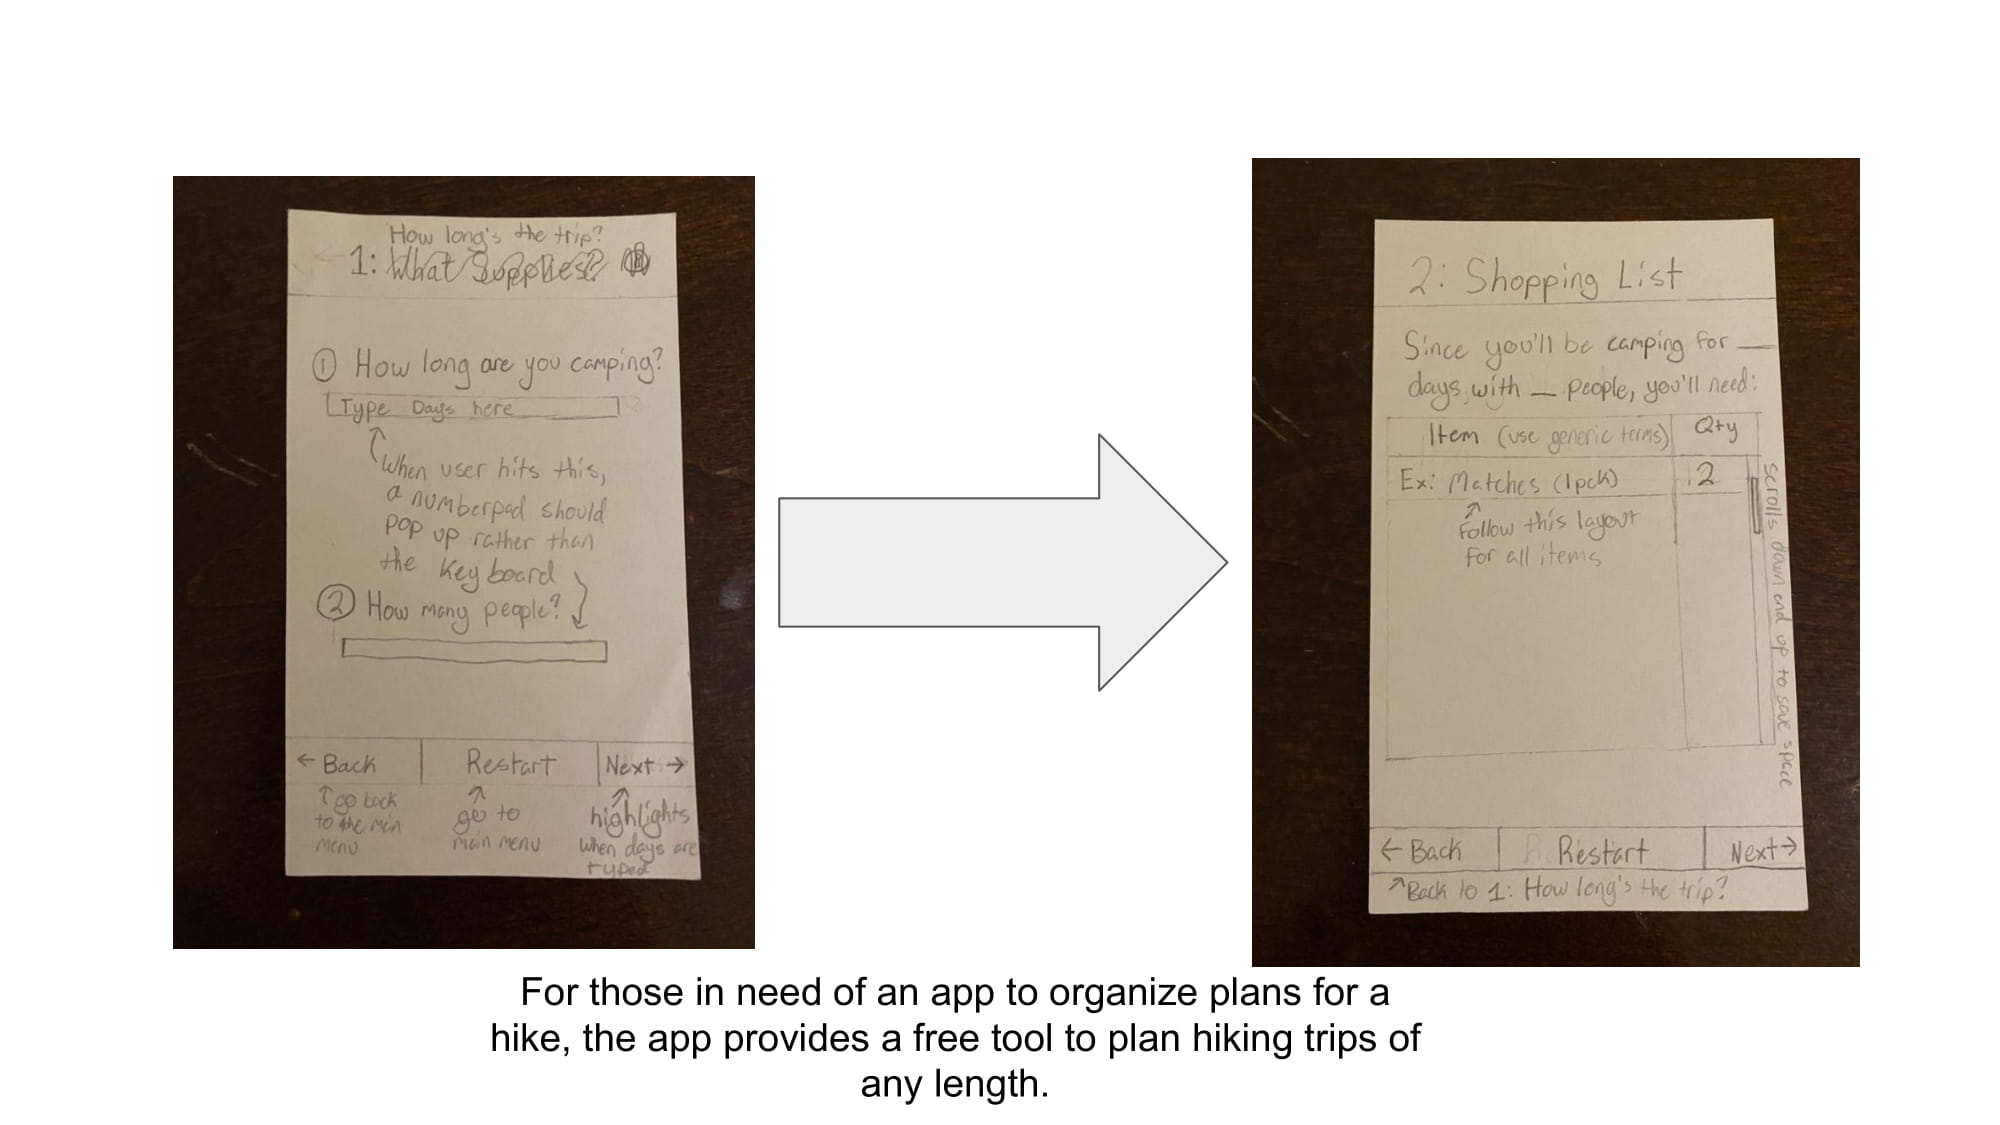 How long's the trip?
1: What Supplies?
① How long are you camping?
Type Days here
When user hits this,
a numberpad should
pop up rather than
the keyboard
② How many people?
← Back Restart Next →
go back
to the main
menu
go to
main menu
highlights
when days are
typed
2: Shopping List
Since you'll be camping for __
days, with _ people, you'll need:
Item (use generic terms) Qty
Ex: Matches (1pck) 2
Follow this layout
for all items
scrolls down and up to save space
← Back Restart Next →
Back to 1: How long's the trip?
For those in need of an app to organize plans for a
hike, the app provides a free tool to plan hiking trips of
any length.